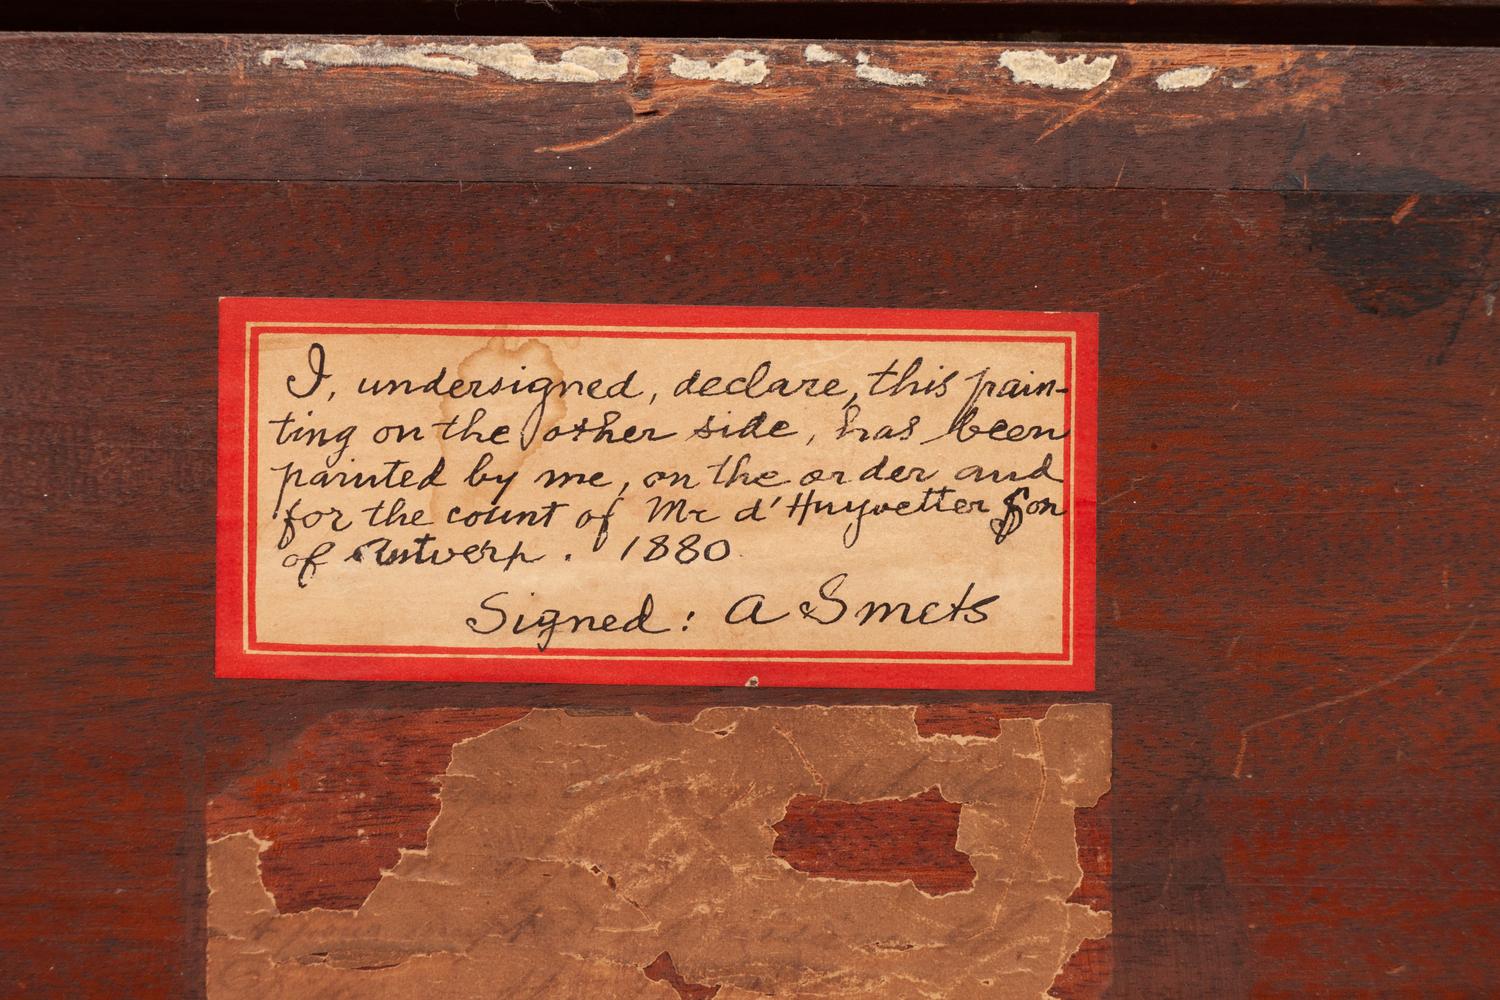 I, undersigned, declare, this pain-
ting on the other side, has been
painted by me, on the order and
for the count of Mr d'Huyvetter Son
of Antwerp. 1880
Signed: A Smets